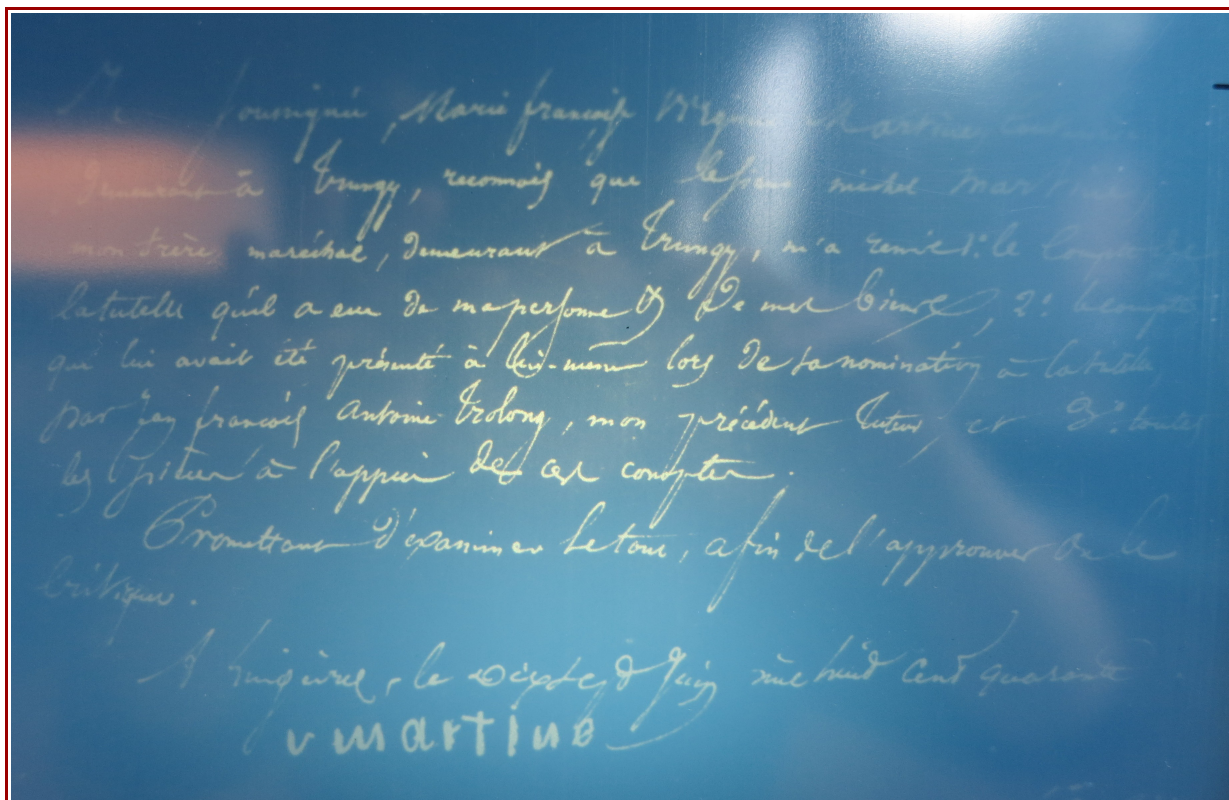 Je soussignée, Marie françoise Virginie Martine
demeurant à Trungy, reconnais que le sieur michel Martine,
mon frère, maréchal, demeurant à Trungy, m'a remis 1º le compte de
la tutelle qu'il a eue de ma personne & de mes biens, 2º le compte
qui lui avait été présenté à lui-même lors de sa nomination à la tutelle,
par Jean françois Antoine Trolong, mon précédent tuteur, et 3º toutes
les pièces à l'appui de ces comptes.
Promettant d'examiner le tout, afin de l'approuver ou le
critiquer.
A le dix sept Juin mil huit cent quarante
v martine